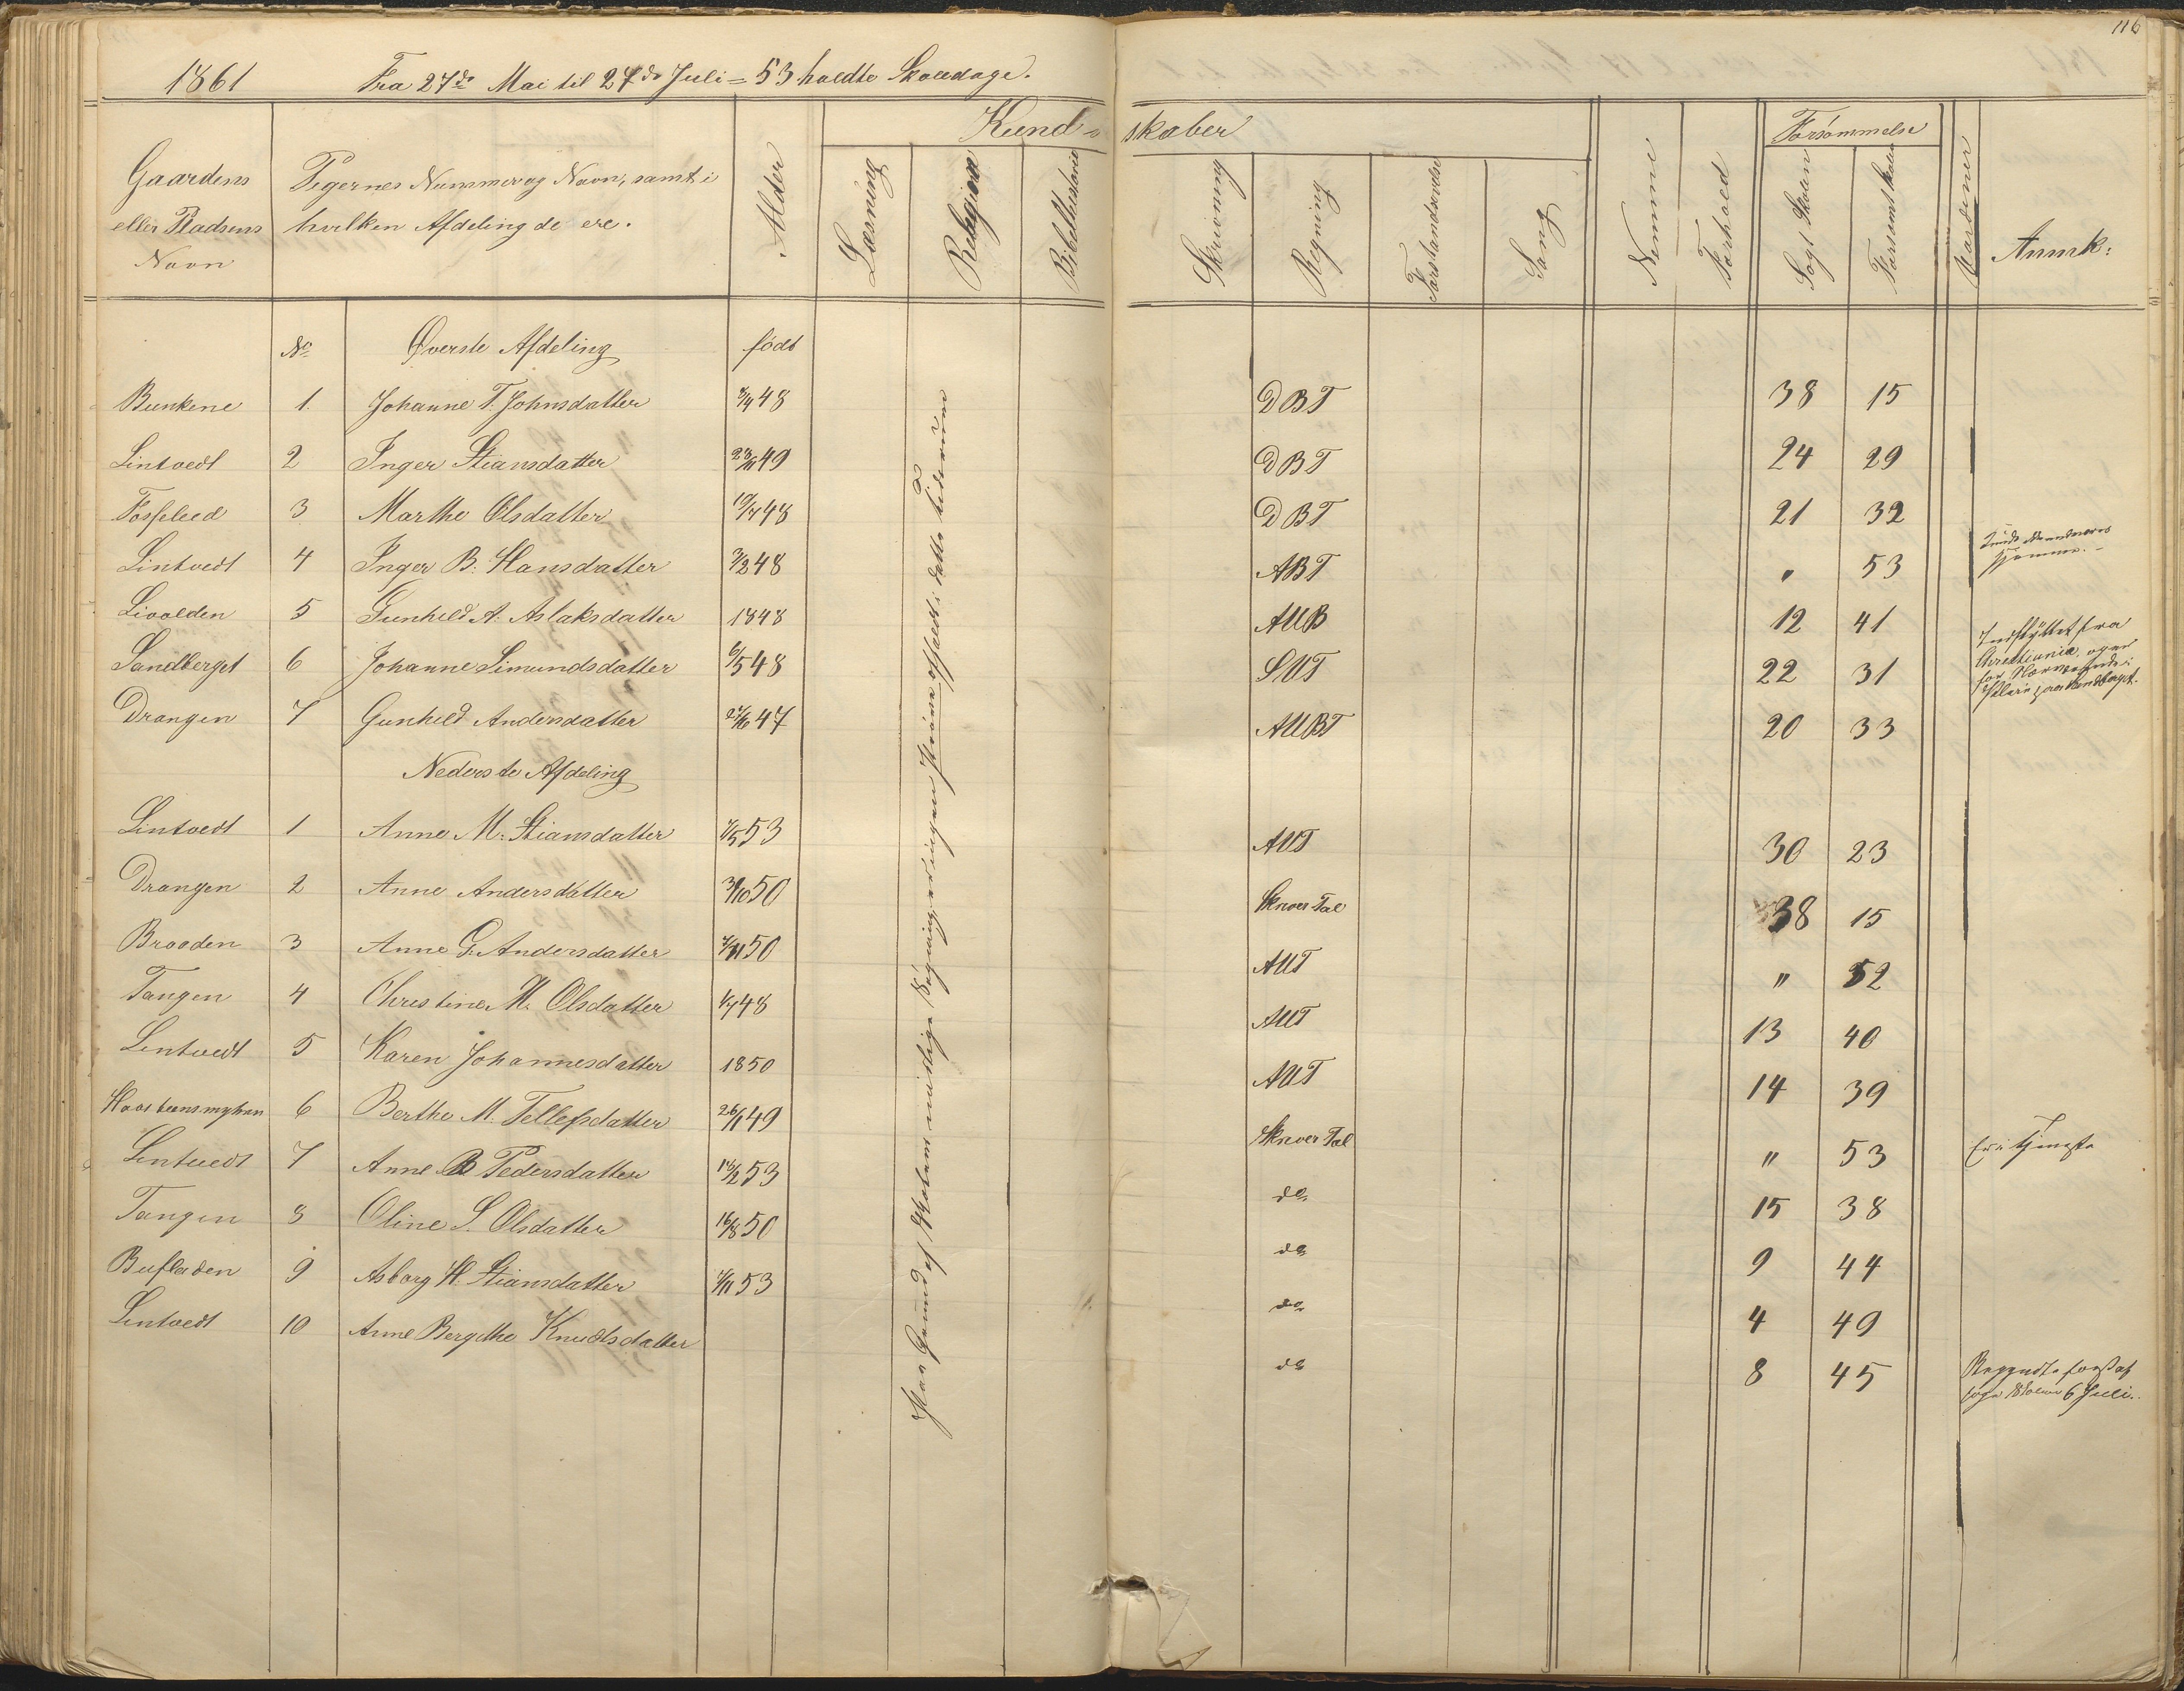 116
1861 Fra 27de Mai til 27de Juli = 53 holdte Skoledage.
Kund- skaber
Forsømmelse
Gaardens eller Pladsens Navn
Pigernes Nummer og Navn, samt i hvilken Afdeling de ere.
Alder
Læsning
Religion
Bibelhistorie
Skrivning
Regning
Forstandsøvelse
Sang
Nemme
Forhold
Søgt Skolen
Forsømt Skolen
Karakterer
Anmk:
No Øverste Afdeling født
Bunkene 1. Johanne T. Johnsdatter 48 DBT 38 15
Lintvedt 2 Inger Stiansdatter 49 DBT 24 29
Fosselied 3 Marthe Olsdatter 10/7 48 DBT 21 32
Lintvedt 4 Inger B. Hansdatter 48 ABT " 53
hjemme. -
Livolden 5 Gunhild A. Aslaksdatter 1848 AUB 12 41
Sandberget 6 Johanne Simundsdatter 6/5 48 SUT 22 31 Indflyttet fra
Christiania, og er
for Nærværende i
Drangen 7 Gunhild Andersdatter 47 AUBT 20 33
Nederste Afdeling
Lintvedt 1 Anne M. Stiansdatter 53 AUT 30 23
Drangen 2 Anne Andersdatter 50 Skriver Tal 38 15
Brooden 3 Anne G. Andersdatter 50 AUT " 52
Tangen 4 Christine M. Olsdatter 48 AUT 13 40
Lintvedt 5 Karen Johannesdatter 1850 AUT 14 39
6 Berthe M. Tellefsdatter 26/1 49 Skriver Tal " 53 Er i Tjeneste
Lintvedt 7 Anne B Pedersdatter 18/2 53 do 15 38
Tangen 8 Oline S. Olsdatter 16/8 50 do 9 44
Bufladen 9 Asborg H. Stiansdatter 53 do 4 49
Lintvedt 10 Anne Bergithe Knudsdatter do 8 45 Begyndte først at
søge Skolen 6 Juli.
Paa Grund af Skolens maadelige Søgning er ingen Prøve afholdt i dette Tidsrum